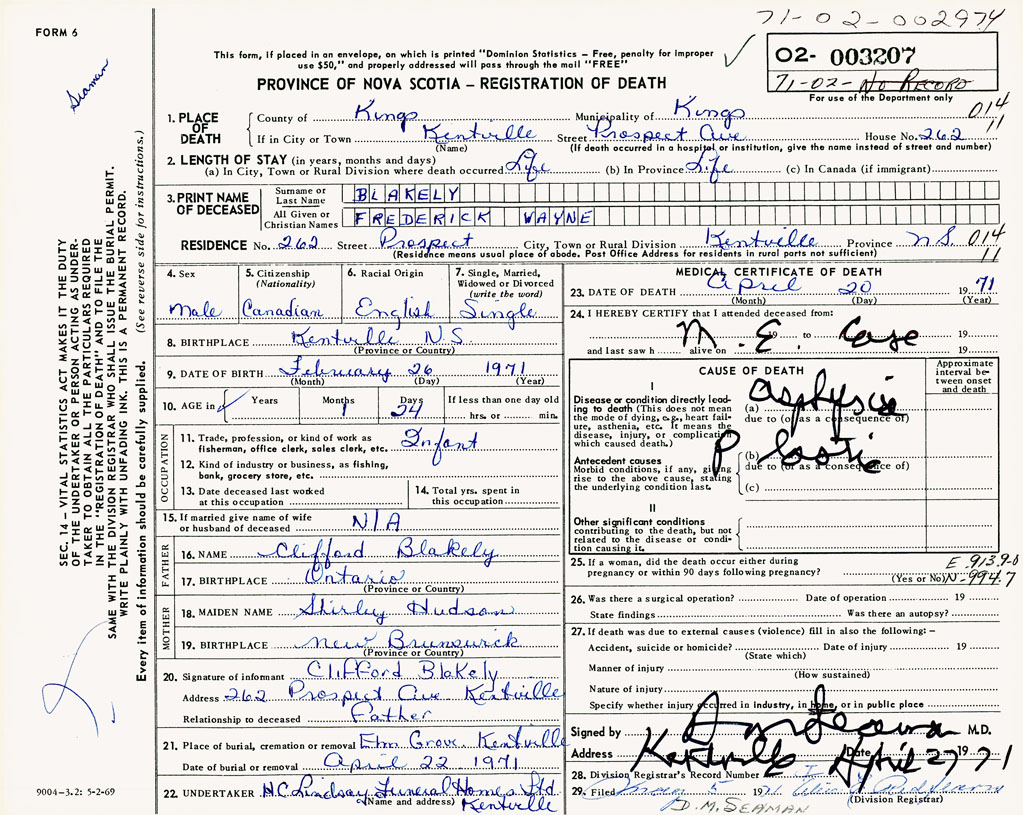 FORM 6
71-02-002974
This form, if placed in an envelope, on which is printed "Dominion Statistics - Free, penalty for improper
use $50," and properly addressed will pass through the mail "FREE"
PROVINCE OF NOVA SCOTIA - REGISTRATION OF DEATH
02- 003207
71-02- No RECORD
For use of the Department only
014
11
1. PLACE OF DEATH
County of Kings Municipality of Kings
If in City or Town Kentville Street Prospect Ave House No. 262
(Name) (If death occurred in a hospital or institution, give the name instead of street and number)
2. LENGTH OF STAY (in years, months and days)
(a) In City, Town or Rural Division where death occurred Life (b) In Province Life (c) In Canada (if immigrant)
3. PRINT NAME OF DECEASED
Surname or Last Name BLAKELY
All Given or Christian Names FREDERICK WAYNE
RESIDENCE No. 262 Street Prospect City, Town or Rural Division Kentville Province N.S. 014
11
(Residence means usual place of abode. Post Office Address for residents in rural parts not sufficient)
4. Sex
Male
5. Citizenship (Nationality)
Canadian
6. Racial Origin
English
7. Single, Married, Widowed or Divorced (write the word)
Single
8. BIRTHPLACE Kentville N.S.
(Province or Country)
9. DATE OF BIRTH February 26 1971
(Month) (Day) (Year)
10. AGE in Years Months 1 Days 24 If less than one day old
hrs. or min.
OCCUPATION
11. Trade, profession, or kind of work as fisherman, office clerk, sales clerk, etc. Infant
12. Kind of industry or business, as fishing, bank, grocery store, etc.
13. Date deceased last worked at this occupation
14. Total yrs. spent in this occupation
15. If married give name of wife or husband of deceased N/A
FATHER
16. NAME Clifford Blakely
17. BIRTHPLACE Ontario
(Province or Country)
MOTHER
18. MAIDEN NAME Shirley Hudson
19. BIRTHPLACE New Brunswick
(Province or Country)
20. Signature of informant Clifford Blakely
Address 262 Prospect Ave Kentville
Relationship to deceased Father
21. Place of burial, cremation or removal Elm Grove Kentville
Date of burial or removal April 22 1971
22. UNDERTAKER H.C. Lindsay Funeral Homes Ltd
(Name and address) Kentville
MEDICAL CERTIFICATE OF DEATH
23. DATE OF DEATH April 20 1971
(Month) (Day) (Year)
24. I HEREBY CERTIFY that I attended deceased from:
19 to 19
M.E. Case
and last saw h alive on 19
CAUSE OF DEATH
Approximate interval between onset and death
I
Disease or condition directly leading to death (This does not mean the mode of dying, e.g., heart failure, asthenia, etc. It means the disease, injury, or complication which caused death.)
(a) asphyxia
due to (or as a consequence of)
Antecedent causes
Morbid conditions, if any, giving rise to the above cause, stating the underlying condition last.
(b) Plastic
due to (or as a consequence of)
(c)
II
Other significant conditions contributing to the death, but not related to the disease or condition causing it.
25. If a woman, did the death occur either during pregnancy or within 90 days following pregnancy? (Yes or No)
E-913.9-0
N-994.7
26. Was there a surgical operation? Date of operation 19
State findings Was there an autopsy?
27. If death was due to external causes (violence) fill in also the following:-
Accident, suicide or homicide? Date of injury 19
(State which)
Manner of injury
(How sustained)
Nature of injury
Specify whether injury occurred in industry, in home, or in public place
Signed by M.D.
Address Kentville Date April 27 1971
28. Division Registrar's Record Number
29. Filed 5 1971
(Division Registrar)
D.M. SEAMAN
Seaman
SEC. 14 - VITAL STATISTICS ACT MAKES IT THE DUTY
OF THE UNDERTAKER OR PERSON ACTING AS UNDER-
TAKER TO OBTAIN ALL THE PARTICULARS REQUIRED
IN THE "REGISTRATION OF DEATH" AND TO FILE THE
SAME WITH THE DIVISION REGISTRAR WHO SHALL ISSUE THE BURIAL PERMIT.
WRITE PLAINLY WITH UNFADING INK. THIS IS A PERMANENT RECORD.
Every item of information should be carefully supplied. (See reverse side for instructions.)
9004-3.2: 5-2-69